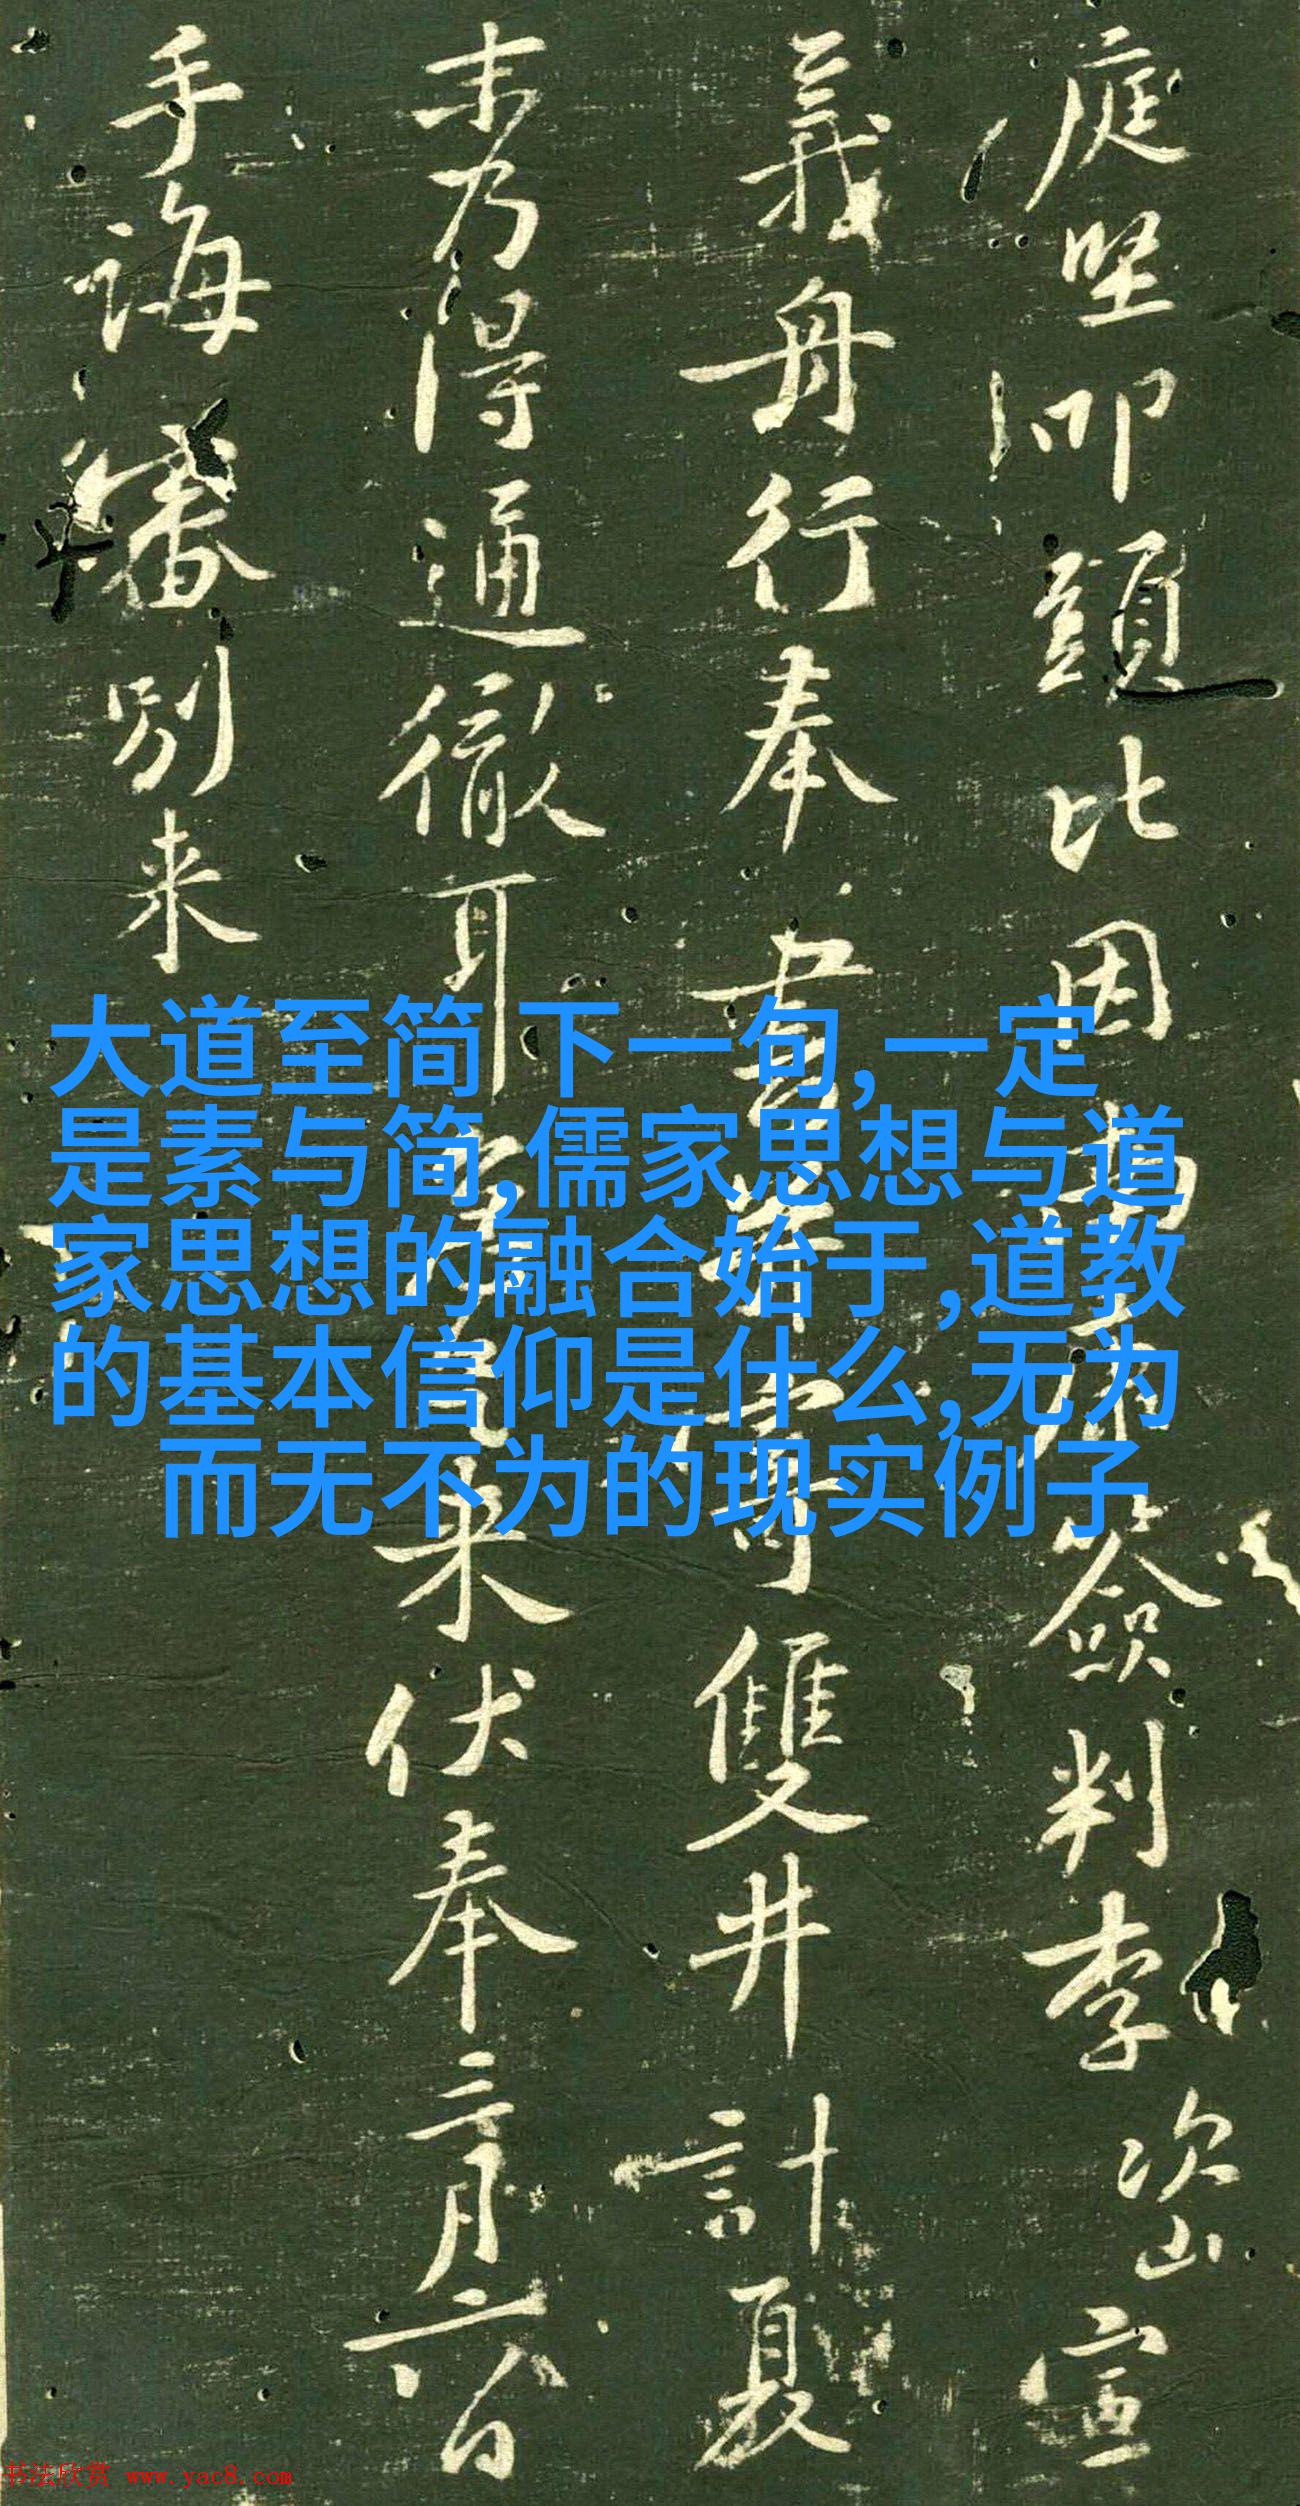 庭坚叩頭比因南康簽判李次山宣
義舟行奉書并寄雙井計夏
末乃得通徹耳
来伏奉三月六日
手誨審別来
大道至简 下一句,一定
是素与简,儒家思想与道
家思想的融合始于,道教
的基本信仰是什么,无为
而无不为的现实例子
书法欣赏 www.yac8.com